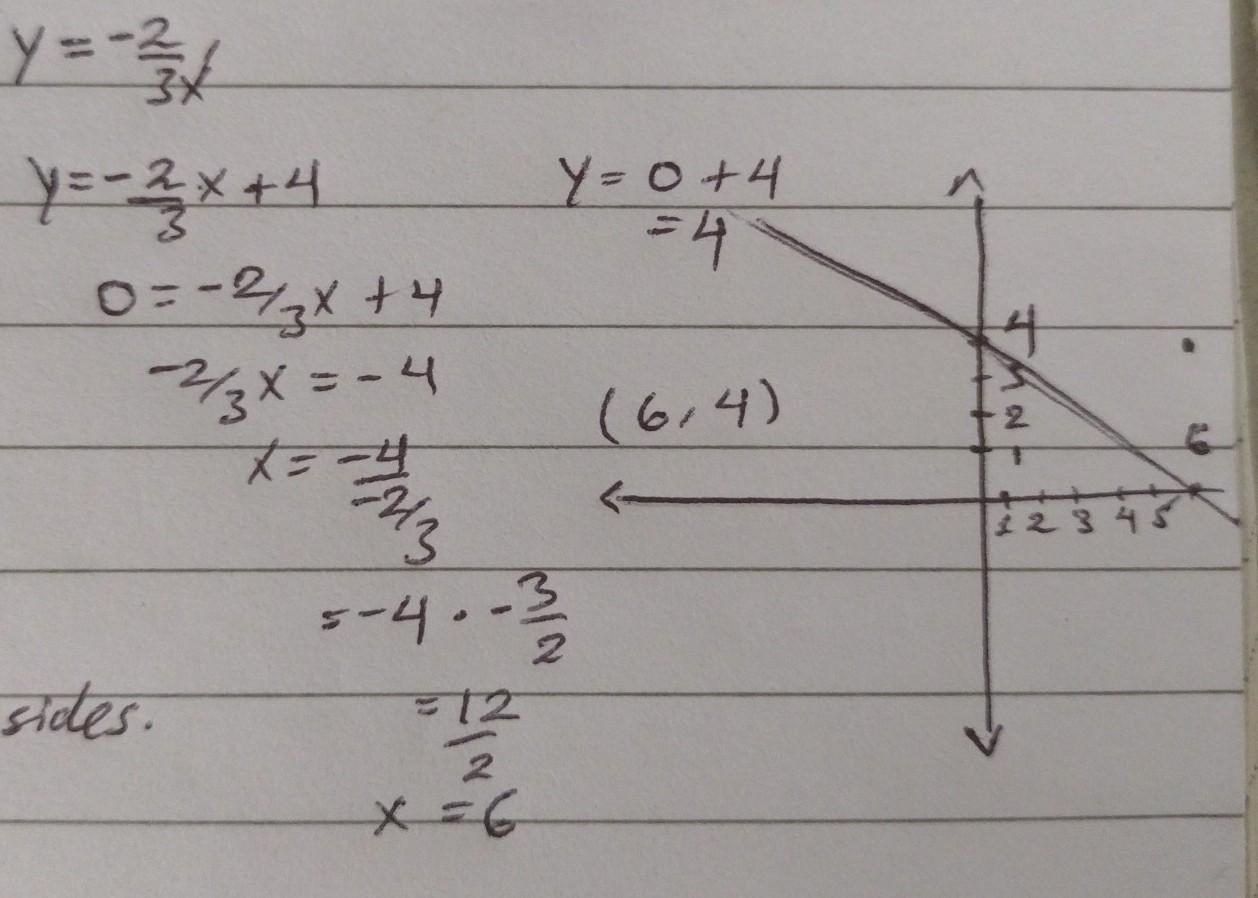 y = -2/3x
y = -2/3 x + 4
0 = -2/3x + 4
-2/3x = -4
x = -4/-2/3
= -4 · -3/2
sides.
= 12/2
x = 6
y = 0 + 4
= 4
(6, 4)
4
3
2
1
6
1 2 3 4 5